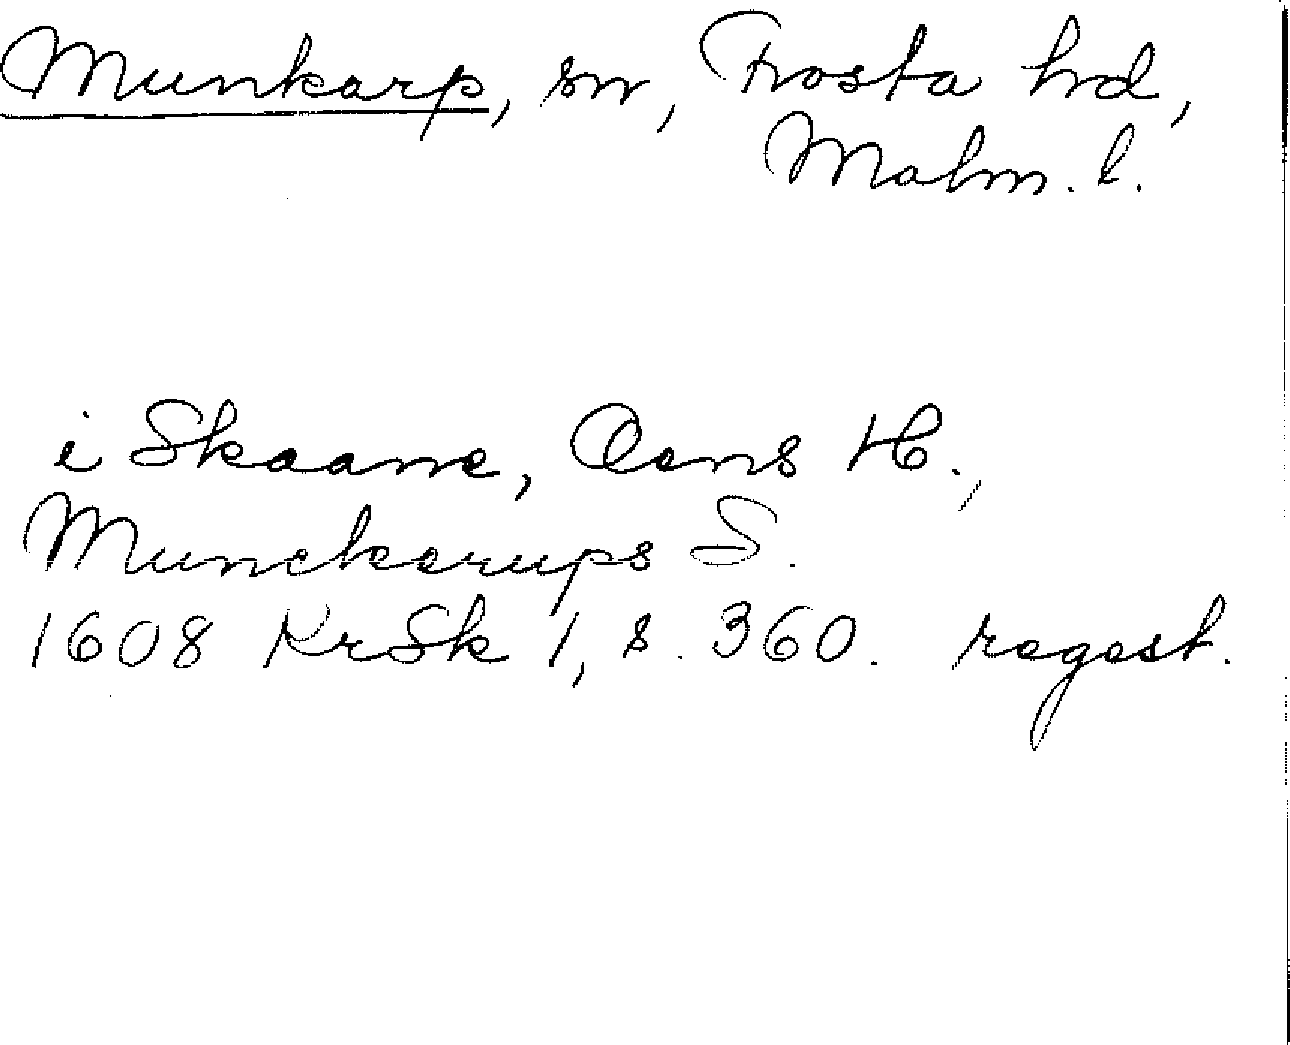 Munkarp, sn, Frosta hrd,
Malm. l.
i Skaane, Oens H.,
Munckerups S.
1608 KrSk 1, s. 360. regest.